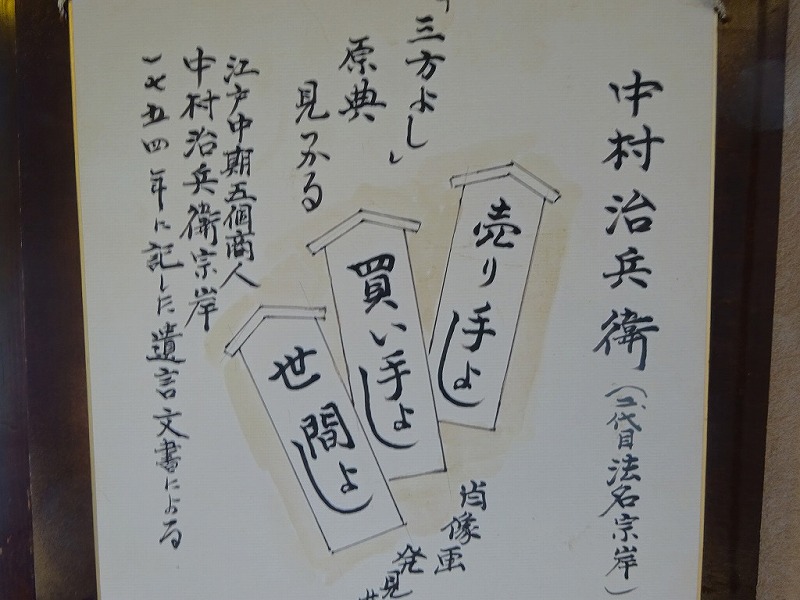 中村治兵衛(二代目法名宗岸)
「三方よし」
原典
見つかる
売り手よし
買い手よし
世間よし
肖像画
発見
江戸中期五個商人
中村治兵衛宗岸
一七五四年に記した遺言文書による